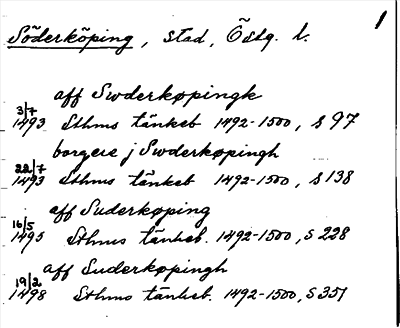 1
Söderköping, stad, Östg. l.
aff Swderkøpingk
3/7 1493 Sthms tänkeb 1492-1500, s 97
borgere j Swderkøpingh
22/7 1493 Sthms tänkeb 1492-1500, s 138
aff Suderkøping
16/5 1495 Sthms tänkeb. 1492-1500, s 228
aff Suderkøpingh
19/2 1498 Sthms tänkeb. 1492-1500, s 351